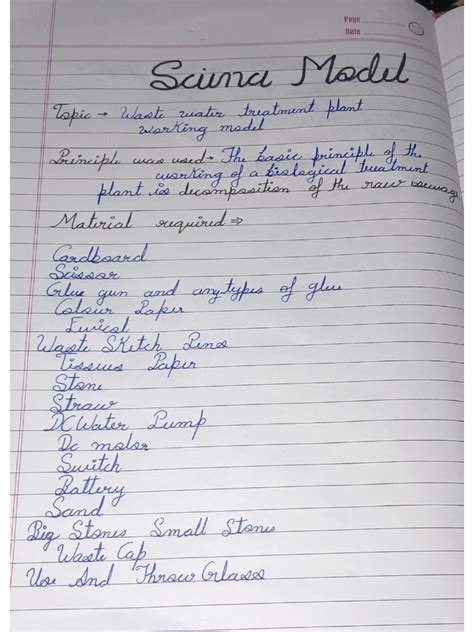 Page
Date
Science Model
Topic → Waste water treatment plant
working model
Principle was used → The basic principle of the
working of a biological treatment
plant is decomposition of the raw sewage
Material required ⇒
Cardboard
Scissor
Glue gun and any types of glue
Colour Paper
Fevicol
Waste Sketch Pens
Tissues Paper
Stone
Straw
DC Water Pump
Dc motor
Switch
Battery
Sand
Big Stones Small Stones
Waste Cap
Use And Throw Glasses